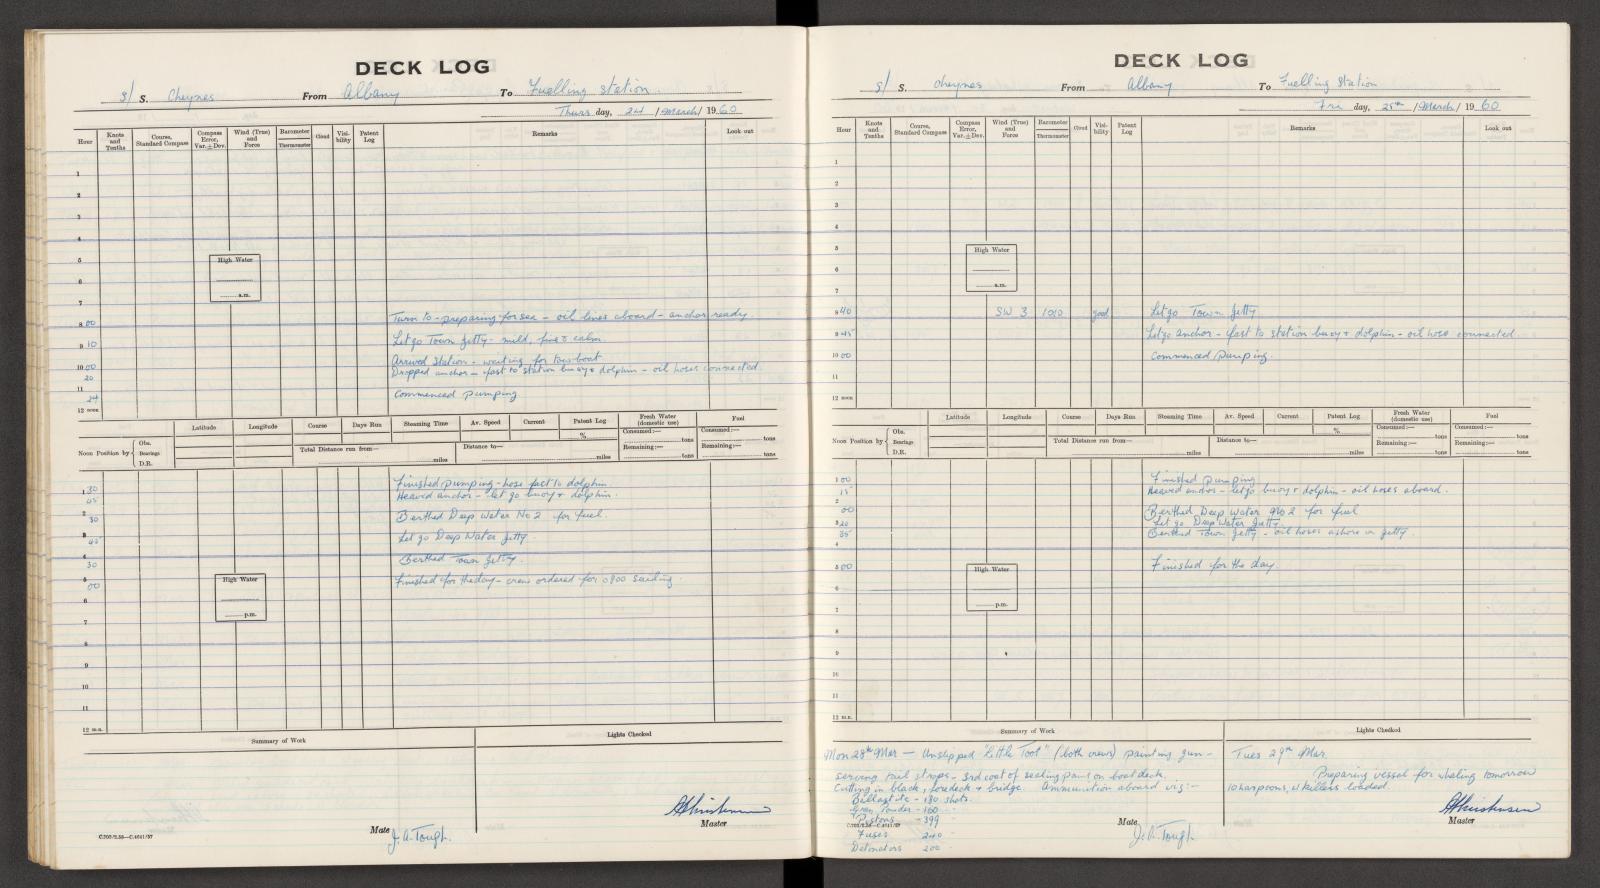 DECK LOG
S/ S. Cheynes From Albany To Fuelling Station.
Thurs day, 24 / March / 1960
Hour Knots and Tenths Course, Standard Compass Compass Error, Var. ± Dev. Wind (True) and Force Barometer Thermometer Cloud Visibility Patent Log Remarks Look out
1
2
3
4
5
High Water
6
a.m.
7
8 00 Turn to - preparing for sea - oil lines aboard - anchor ready
9 10 Let go Town Jetty - mild, fine & calm.
10 00 Arrived Station - waiting for tow boat
20 Dropped anchor - fast to station buoy & dolphin - oil hoses connected.
11
24 Commenced pumping
12 noon
Latitude Longitude Course Days Run Steaming Time Av. Speed Current Patent Log Fresh Water (domestic use) Fuel
% Consumed:— tons Consumed:— tons
Noon Position by Obs. Bearings D.R. Total Distance run from— miles Distance to— miles Remaining:— tons Remaining:— tons
1 30 Finished pumping - hose fast to dolphin.
45 Heaved anchor - let go buoy & dolphin.
2
30 Berthed Deep Water No 2 for fuel.
3
45 Let go Deep Water Jetty.
4
30 Berthed Town Jetty.
5
00 Finished for the day - crew ordered for 0800 sailing.
High Water
6
p.m.
7
8
9
10
11
12 m.n.
Summary of Work Lights Checked
Master
Mate J. A. Tough.
C.707/2.58—C.4641/57
DECK LOG
S/ S. Cheynes From Albany To Fuelling Station
Fri day, 25th / March / 1960
Hour Knots and Tenths Course, Standard Compass Compass Error, Var. ± Dev. Wind (True) and Force Barometer Thermometer Cloud Visibility Patent Log Remarks Look out
1
2
3
4
5
High Water
6
a.m.
7
8 40 SW 3 1010 good Let go Town Jetty
9 45 Let go anchor - fast to station buoy & dolphin - oil hose connected.
10 00 Commenced pumping.
11
12 noon
Latitude Longitude Course Days Run Steaming Time Av. Speed Current Patent Log Fresh Water (domestic use) Fuel
% Consumed:— tons Consumed:— tons
Noon Position by Obs. Bearings D.R. Total Distance run from— miles Distance to— miles Remaining:— tons Remaining:— tons
1 00 Finished pumping
15 Heaved anchor - let go buoy & dolphin - oil hoses aboard.
2
00 Berthed Deep Water No 2 for fuel
3 20 Let go Deep Water Jetty.
35 Berthed Town Jetty - oil hoses ashore on jetty.
4
5 00 Finished for the day.
High Water
6
p.m.
7
8
9
10
11
12 m.n.
Summary of Work Lights Checked
Mon 28th Mar — Unslipped "Little Toot" (both crews) painting gun -
serving tail strops - 3rd coat of sealing paint on boat deck.
Cutting in black, foredeck & bridge. Ammunition aboard viz:-
Ballastite - 180 shots.
Gren Powder - 160 "
Pistons - 399
Fuses 240 "
Detonators 200 "
Tues 29th Mar.
Preparing vessel for whaling tomorrow
10 harpoons, killers loaded.
Master
C.707/2.58—C.4641/57
Mate J. A. Tough.